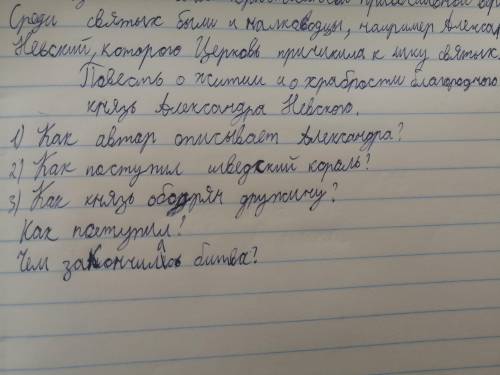 Среди святых были и полководцы, например Алексан
Невский, которого Церковь причикила к лику святых.
Повесть о житии и о храбрости благородного
князь Александра Невского.
1) Как автар описывает Александра?
2) Как поступил шведский король?
3) Как князь ободрян дружину?
Как поступил?
Чем закончилась битва?